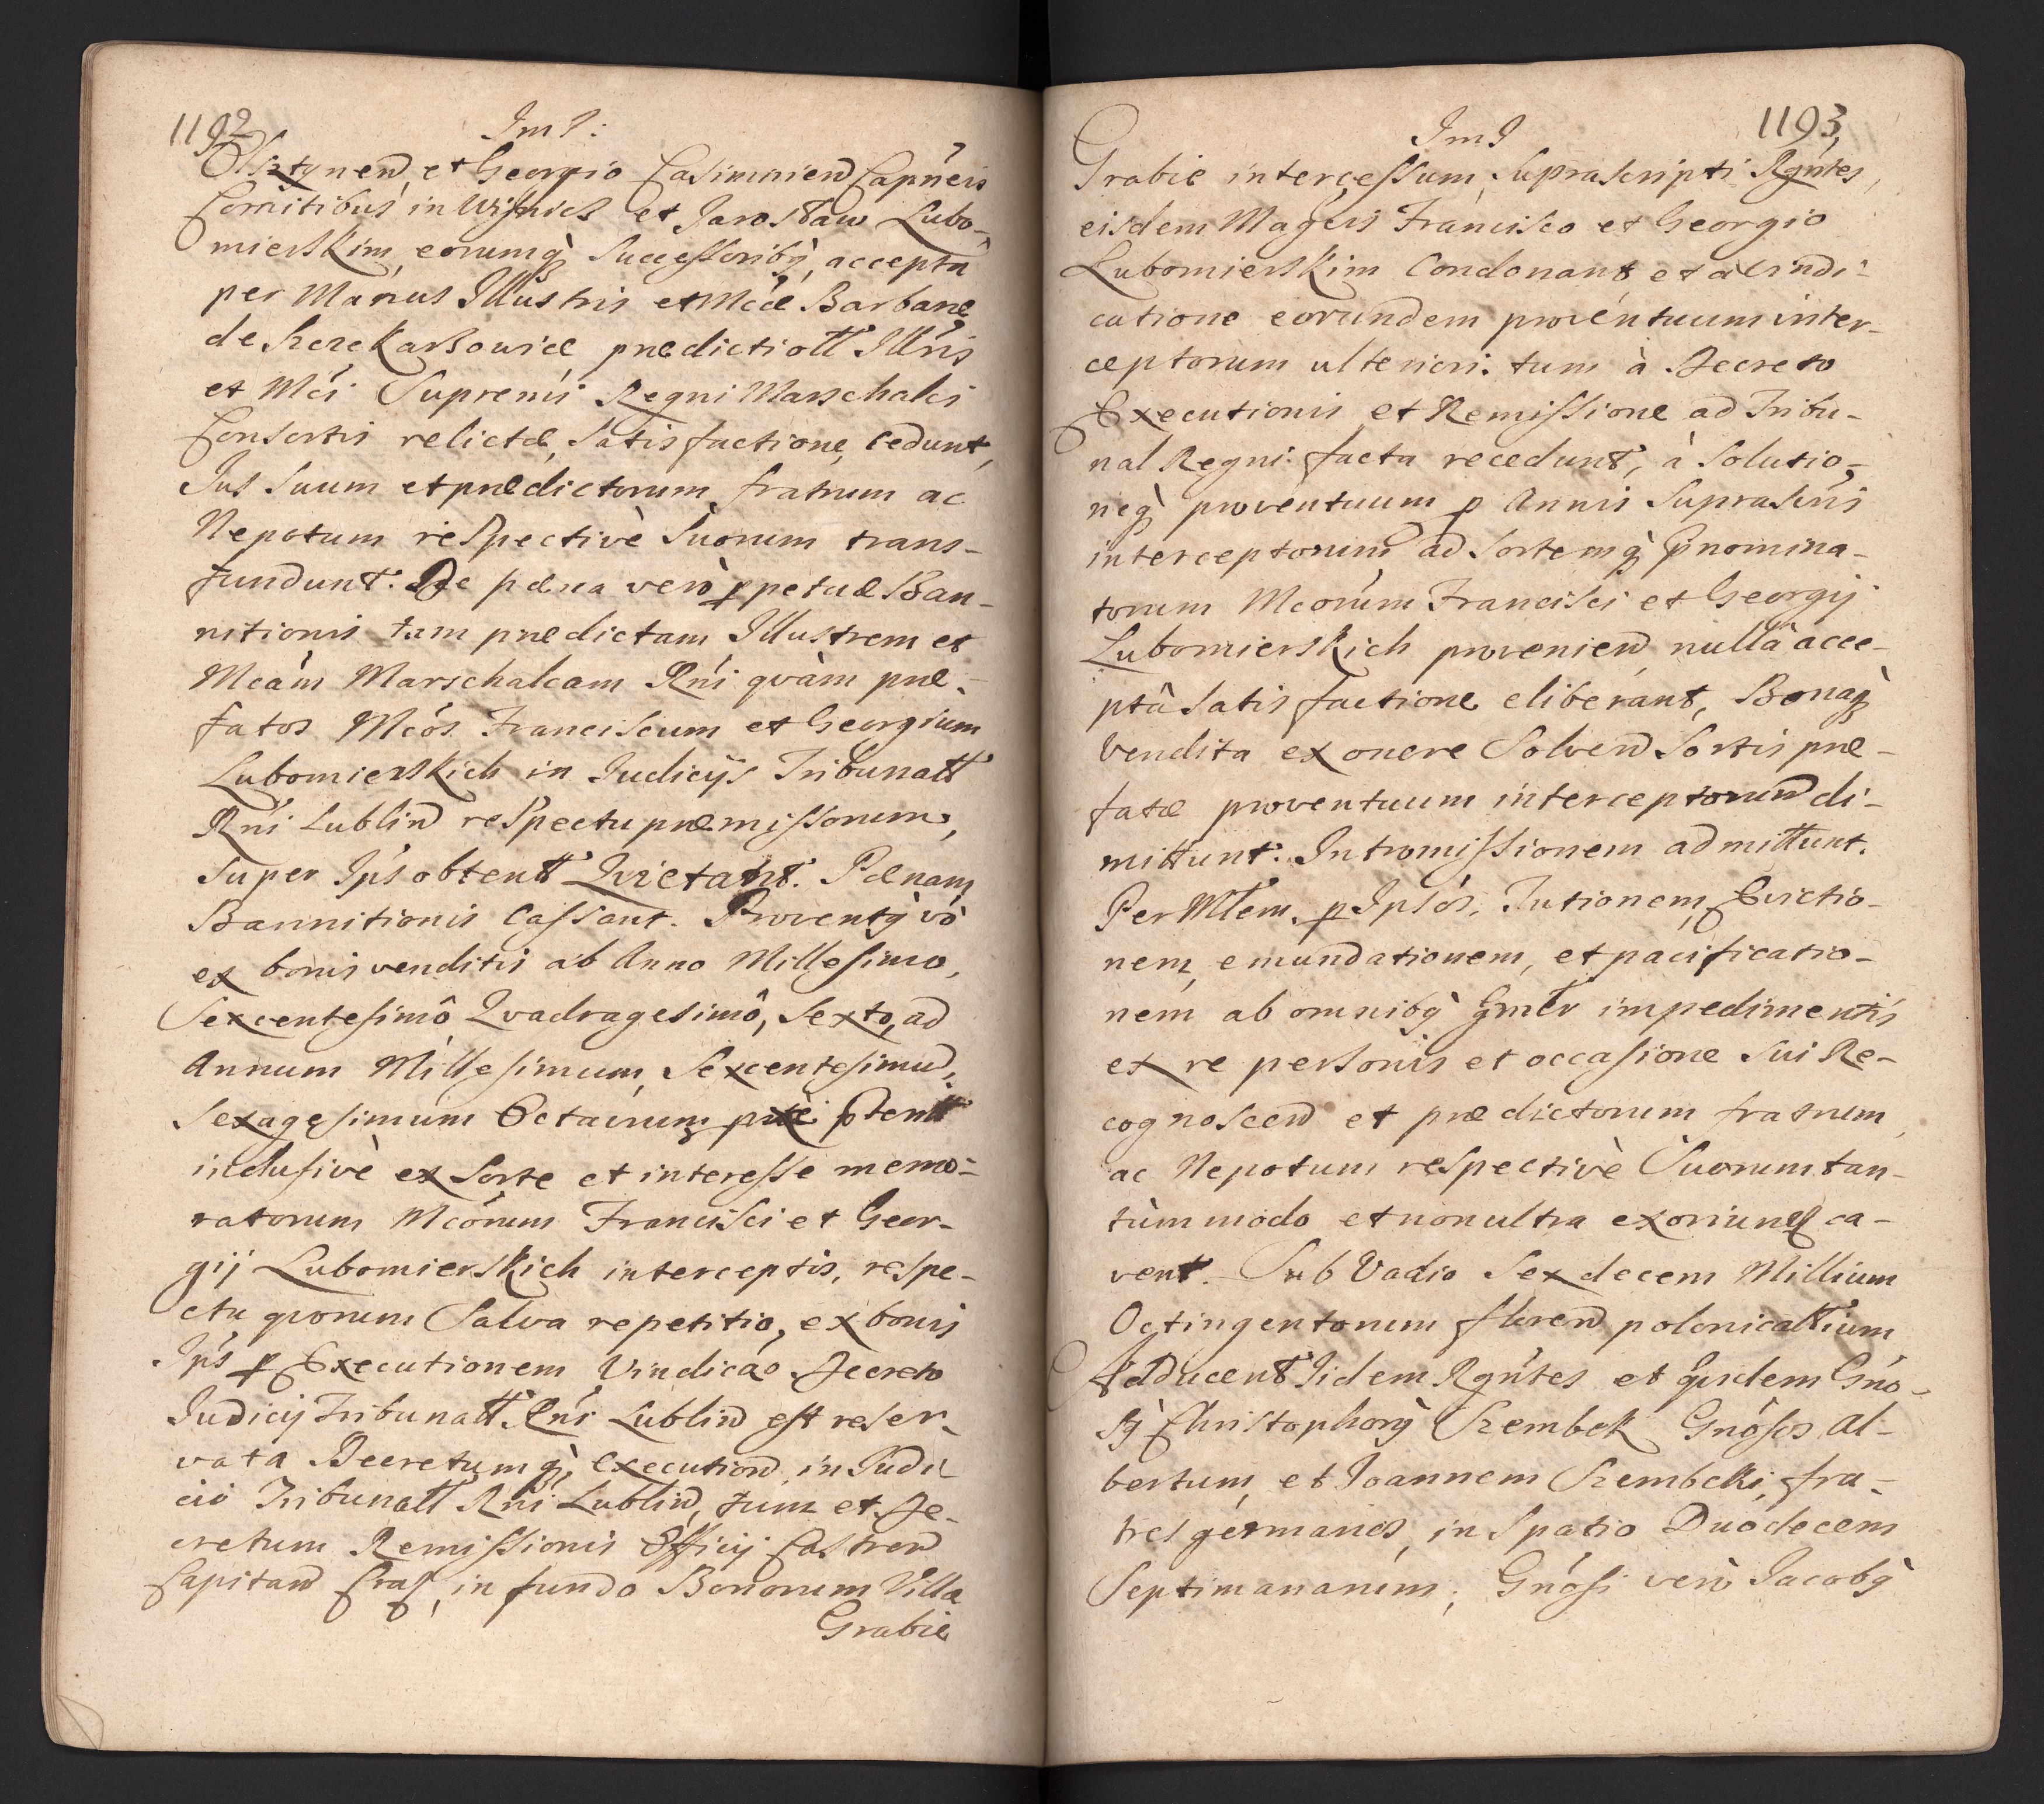 1192
Im I:
Olsztynen et Georgio Casimirien Capneis
Comitibus in Wisnicz et Jarosław Lubo-
mierskim, eorumq̀ Successoribꝫ, accepta
per Manus Illustris et Mcæ Barbaræ
de Szczekarzowice prædicti ott Illris
et Mci Supremi Regni Marschalci
Consortis relictæ, Satisfactione, Cedunt,
Jus Suum et prædictorum fratrum ac
Nepotum respectivè Suorum trans-
fundunt. De pæna verò ꝑpetuæ Ban-
nitionis tam prædictam Illustrem et
Mcám Marschalcam Rńi qvàm præ-
fatos Mcós Franciscum et Georgium
Lubomierskich in Iudicijs Tribunatt
Rńi Lublin respectu præmissorum,
Super Ips obtentt Qvietant. Pænam
Bannitionis Cassant. Proventꝫ vò
ex bonis venditis ab Anno Millesimo,
Sexcentesimô Qvadragesimô, Sexto, ad
Annum Millesimum, Sexcentesimu,
Sexagesimum Octavum
inclusivè ex Sorte et interesse memo-
ratorum Mcórum Francisci et Geor-
gij Lubomierskich interceptis, respe-
ctu qvorum Salva repetitio, ex bonis
Ips ꝑ Executionem Vindicáo Decreto
Iudicij Tribunatt Rńi Lublin est reser-
vata Decretumq̀, execution in Iudi-
cio Tribunatt Rńi Lublin, tum et De-
cretum Remissionis Officij Castren
Capitan Crac, in fundo Bonorum Villa
Grabie
1193
Im I
Grabie intercessum, Suprascripti Rgńtes,
eisdem Magcis Francisco et Georgio
Lubomierskim Condonant et à vindi-
catione eorundem provéntuum inter-
ceptorum ulteriori: tum à Decreto
Executionis et Remissione ad Tribu-
nal Regni facta recedunt, à Solutio-
neq̀ proventuum ꝑ Annis Suprascris
interceptorum ad Sortemq̀ Pnomina-
torum Mcorúm Francisci et Georgij
Lubomierskich provenien nullâ acce-
ptâ Satisfactione eliberant, Bonaq̀
Vendita ex onere Solven Sortis præ-
fatæ proventuum interceptorum di-
mittunt. Intromissionem admittunt.
Per Mtem. ꝑ Ipsós, Tutionem, Evictio-
nem, emundationem, et pacificatio-
nem ab omnibꝫ Gnrlr impedimentis
ex re personis et occasione Sui Re-
cognoscen et prædictorum fratrum,
ac Nepotum respectivè Suorum tan-
tùm modo et non ultra exoriun ca-
vent. Sub Vadio Sexdecem Millium
Octingentorum floren polonicattium
Adducent Iidem Rgńtes et qvidem Gńo-
sꝫ Christophorꝫ Szembek Gnósos Al-
bertum, et Joannem Szembeki, fra-
tres germanos, in Spatio Duodecem
Septimanarum; Gnósi verò Jacobꝫ